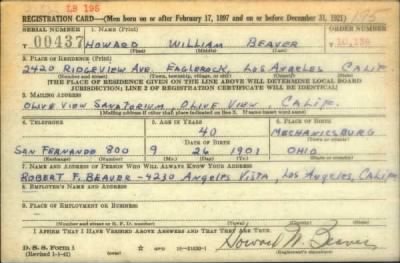 LB 196
REGISTRATION CARD—(Men born on or after February 17, 1897 and on or before December 31, 1921)
SERIAL NUMBER 1. NAME (Print) ORDER NUMBER
U 00437 HOWARD WILLIAM BEAVER 10,136
(First) (Middle) (Last)
2. PLACE OF RESIDENCE (Print)
2420 RIDGEVIEW AVE. EAGLEROCK, LOS ANGELES CALIF
(Number and street) (Town, township, village, or city) (County) (State)
[THE PLACE OF RESIDENCE GIVEN ON THE LINE ABOVE WILL DETERMINE LOCAL BOARD
JURISDICTION; LINE 2 OF REGISTRATION CERTIFICATE WILL BE IDENTICAL]
3. MAILING ADDRESS
OLIVE VIEW SANATORIUM, OLIVE VIEW, CALIF.
(Mailing address if other than place indicated on line 2. If same insert word same)
4. TELEPHONE 5. AGE IN YEARS 6. PLACE OF BIRTH
40 MECHANICSBURG
DATE OF BIRTH (Town or county)
SAN FERNANDO 800 9 26 1901 OHIO
(Exchange) (Number) (Mo.) (Day) (Yr.) (State or country)
7. NAME AND ADDRESS OF PERSON WHO WILL ALWAYS KNOW YOUR ADDRESS
ROBERT F. BEAVER - 4230 ANGELES VISTA, LOS ANGELES, CALIF.
8. EMPLOYER'S NAME AND ADDRESS
9. PLACE OF EMPLOYMENT OR BUSINESS
(Number and street or R. F. D. number) (Town) (County) (State)
I AFFIRM THAT I HAVE VERIFIED ABOVE ANSWERS AND THAT THEY ARE TRUE.
D. S. S. Form 1
(Revised 1-1-42) GPO 16—21630-1 Howard W. Beaver
(Registrant's signature)